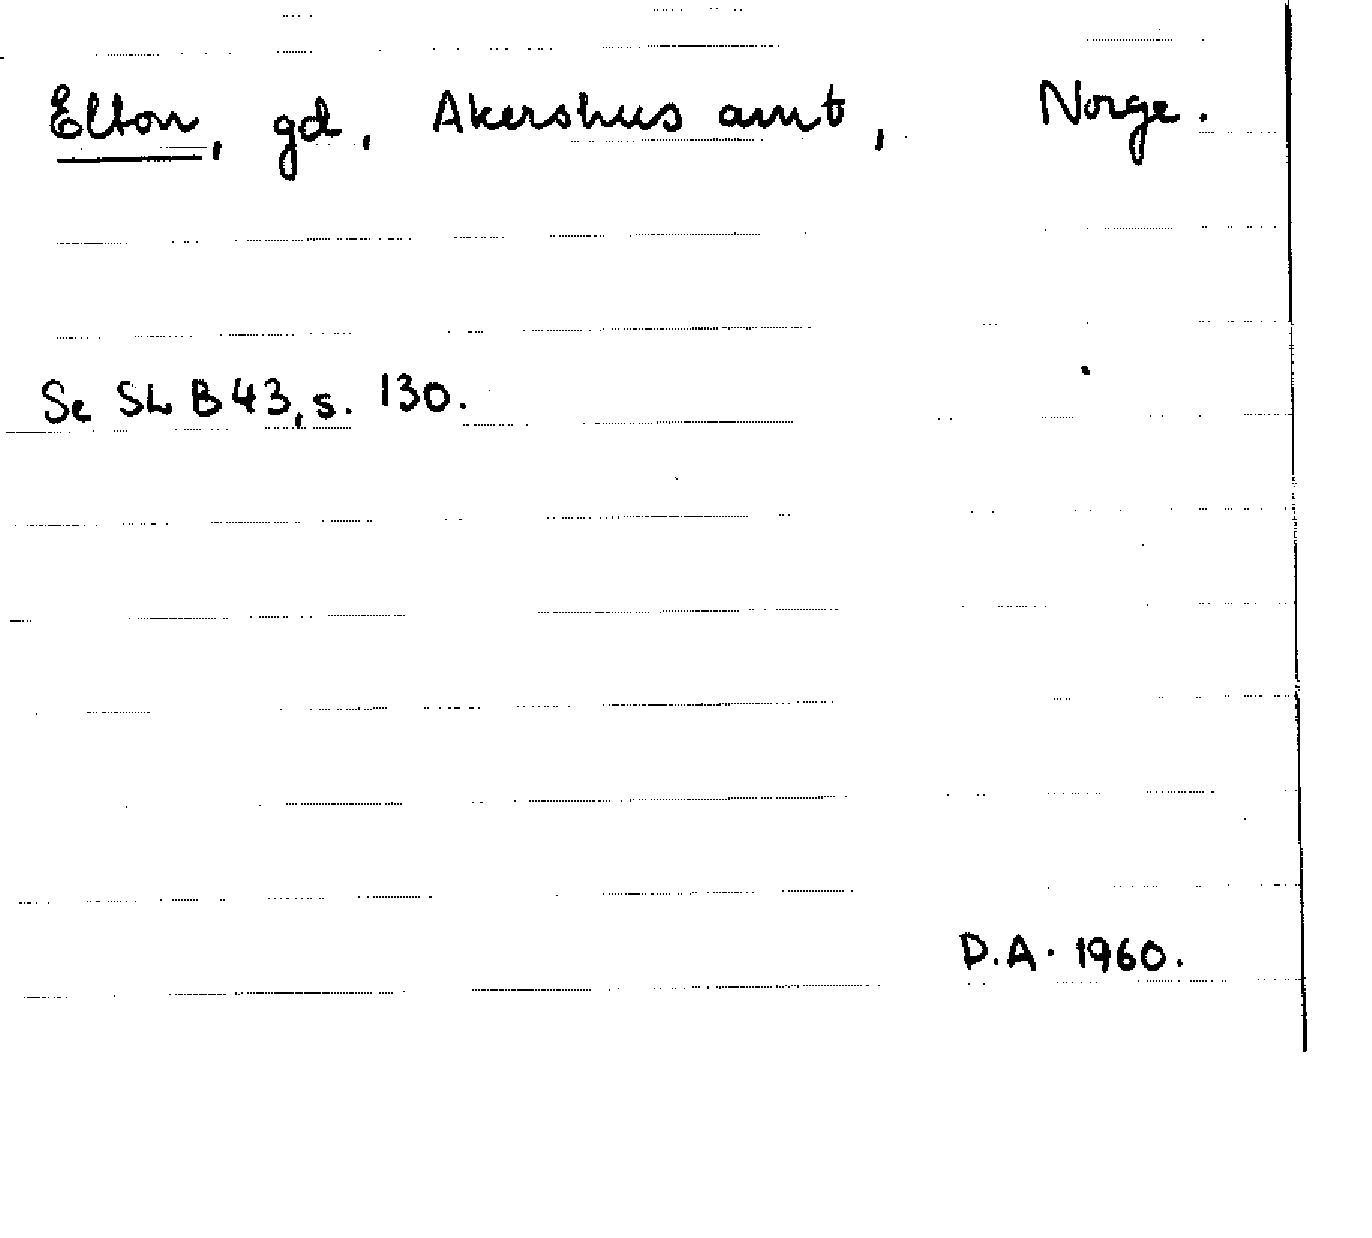 Elton, gd, Akershus amt, Norge.
Se Sk B 43, s. 130.
D.A. 1960.